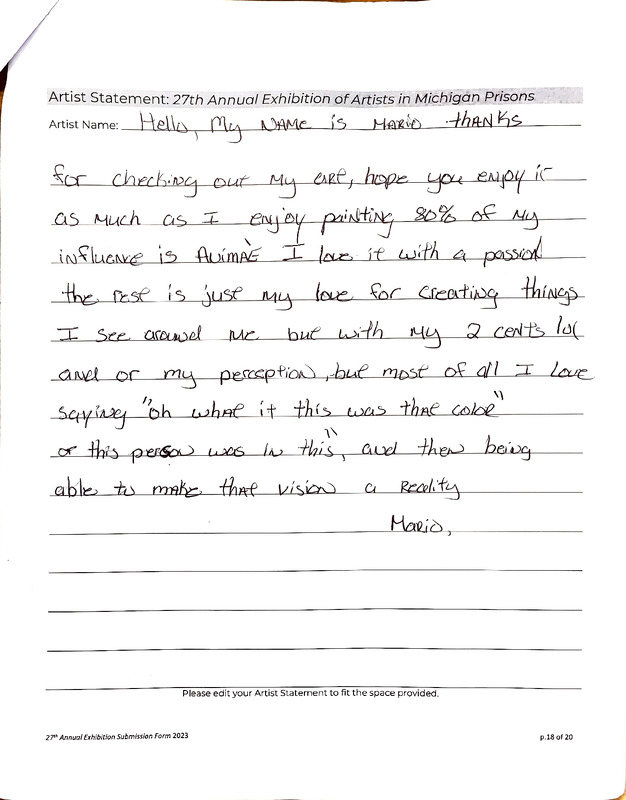 Artist Statement: 27th Annual Exhibition of Artists in Michigan Prisons
Artist Name: Hello, My NAME is MARIO thANKS
for checking out my art, hope you enjoy it
as much as I enjoy painting 80% of my
influence is AnimÀE I love it with a passion
the rest is just my love for creating things
I see around me but with my 2 cents lol
and or my perception, but most of all I Love
saying "oh what if this was that color"
or this person was in this", and then being
able to make that vision a Reality
Mario,
Please edit your Artist Statement to fit the space provided.
27th Annual Exhibition Submission Form 2023
p.18 of 20